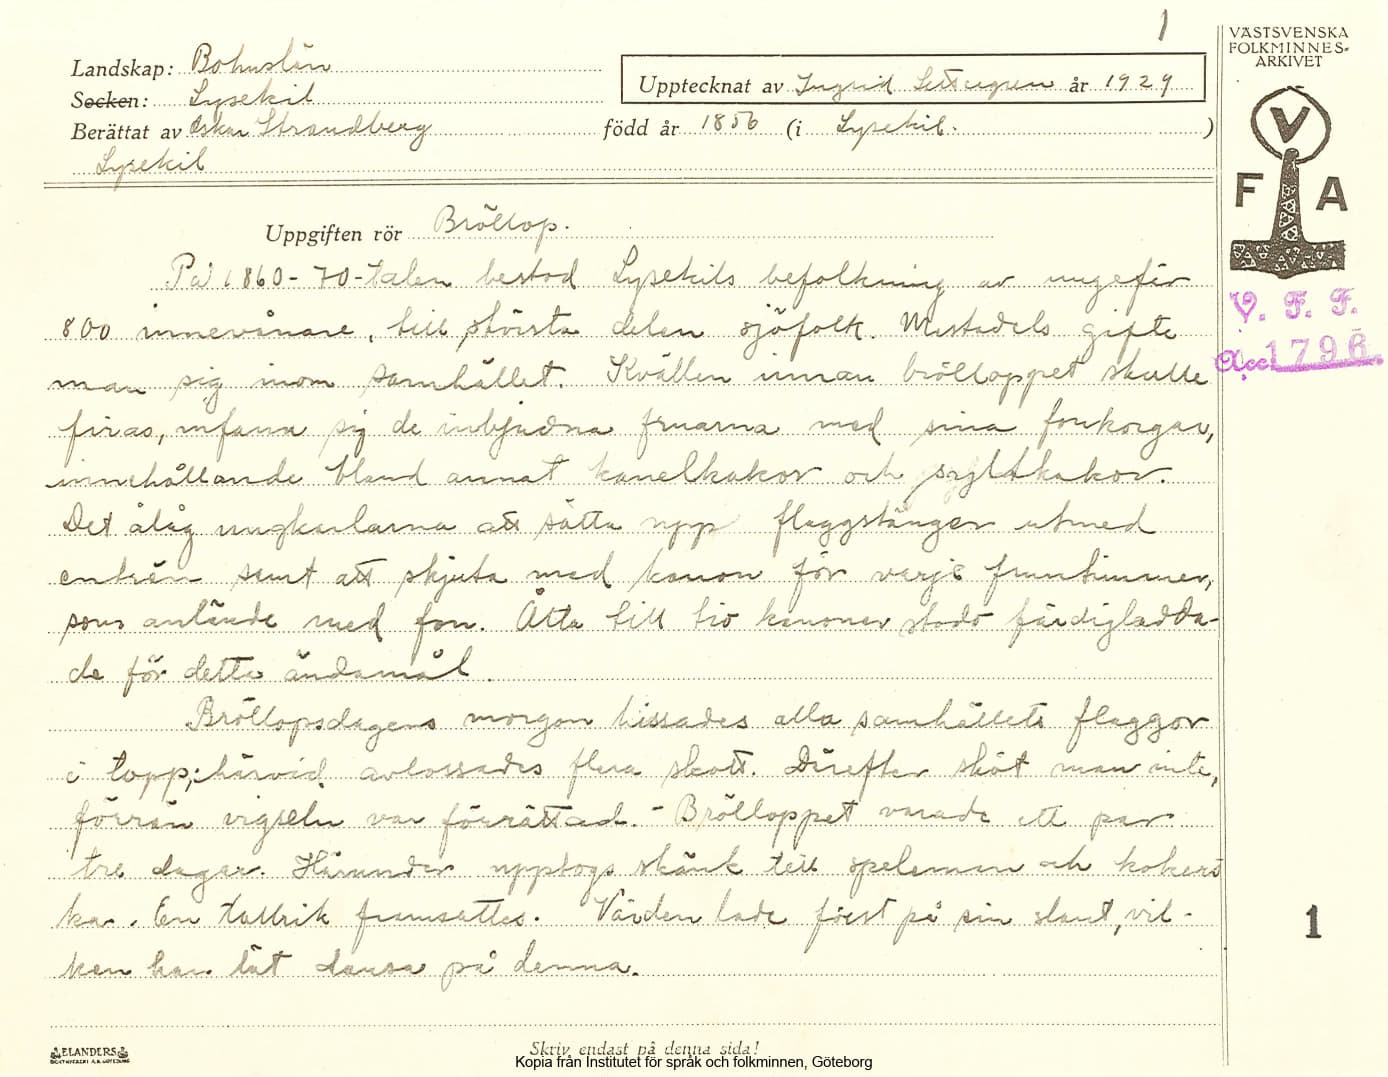 1
VÄSTSVENSKA
FOLKMINNES-
ARKIVET
Landskap: Bohuslän
Socken: Lysekil
Upptecknat av Ingrid år 1929
Berättat av Oskar Strandberg född år 1856 (i Lysekil. )
Lysekil
V
F A
Uppgiften rör Bröllop.
På 1860-70-talen bestod Lysekils befolkning av ungefär
V. F. F.
800 innevånare, till största delen sjöfolk. Mestadels gifte
Acc 1796
man sig inom samhället. Kvällen innan brölloppet skulle
firas, infann sig de inbjudna fruarna med sina fonkorgar,
innehållande bland annat kanelkakor och syltkakor.
Det ålåg ungkarlarna att sätta upp flaggstänger utmed
entrén samt att skjuta med kanon för varje fruntimmer,
som anlände med fon. Åtta till tio kanoner stodo färdigladda-
de för detta ändamål.
Bröllopsdagens morgon hissades alla samhällets flaggor
i topp; härvid avlossades flera skott. Därefter sköt man inte,
förrän vigseln var förrättad. - Brölloppet varade ett par
tre dagar. Härunder upptogs skänk till speleman och kokers
ka. En tallrik framsattes. Värden lade först på sin slant, vil-
1
ken han lät dansa på denna.
ELANDERS
BOKTRYCKERI A.B. GÖTEBORG
Skriv endast på denna sida!
Kopia från Institutet för språk och folkminnen, Göteborg